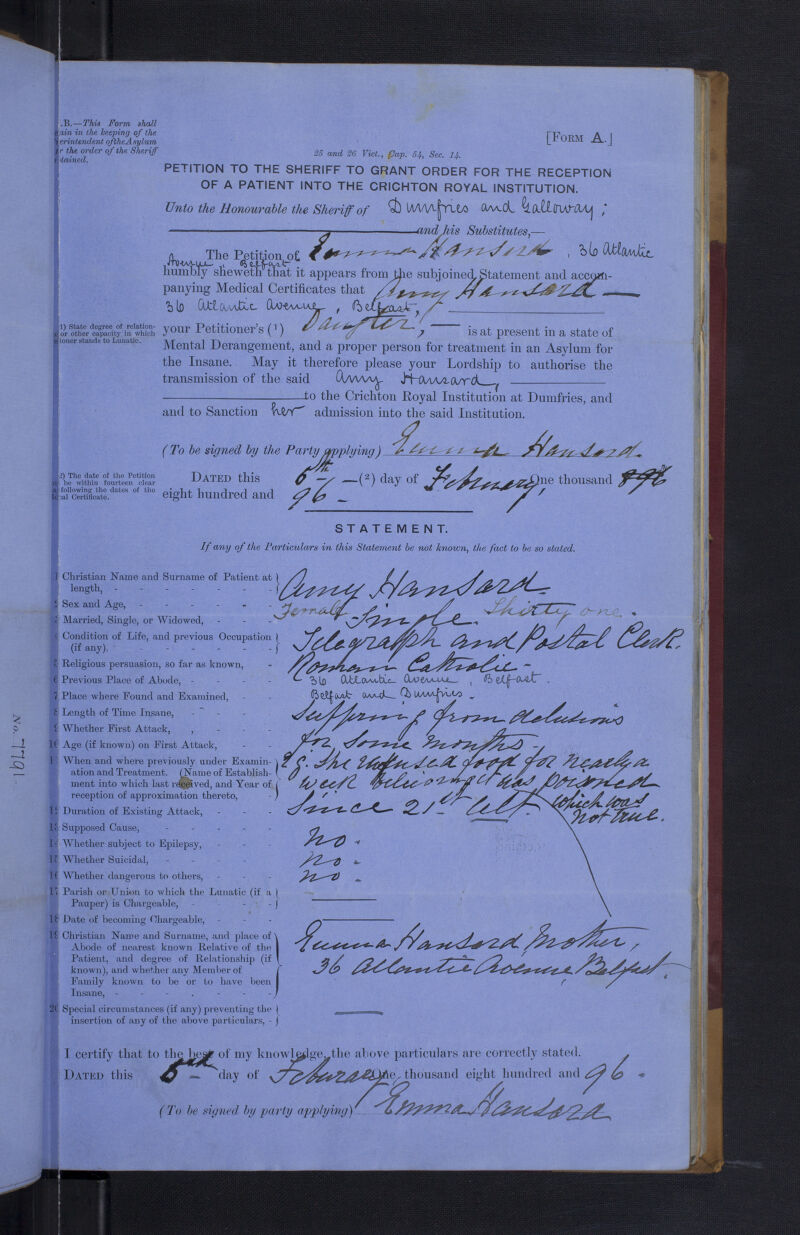 .B.—This Form shall
ain in the keeping of the
erintendent of the Asylum
r the order of the Sheriff
tained.
[FORM A.]
25 and 26 Vict., Cap. 54, Sec. 14.
PETITION TO THE SHERIFF TO GRANT ORDER FOR THE RECEPTION
OF A PATIENT INTO THE CRICHTON ROYAL INSTITUTION.
Unto the Honourable the Sheriff of Dumfries and Galloway;
and his Substitutes,—
The Petition of Emma Hansard, 36 Atlantic
Avenue Belfast
humbly sheweth that it appears from the subjoined Statement and accom-
panying Medical Certificates that Amy Hansard —
36 Atlantic Avenue, Belfast,
1) State degree of relation-
or other capacity in which
ioner stands to Lunatic.
your Petitioner's (1) Daughter, — is at present in a state of
Mental Derangement, and a proper person for treatment in an Asylum for
the Insane. May it therefore please your Lordship to authorise the
transmission of the said Amy Hansard,
to the Crichton Royal Institution at Dumfries, and
and to Sanction her admission into the said Institution.
(To be signed by the Party applying) Emma Hansard.
2) The date of the Petition
be within fourteen clear
following the dates of the
cal Certificate.
DATED this 5th — (2) day of February, One thousand 896
eight hundred and 96 —
STATEMENT.
If any of the Particulars in this Statement be not known, the fact to be so stated.
1 Christian Name and Surname of Patient at
length, - Amy Hansard
2 Sex and Age, - Female Thirty one.
3 Married, Single, or Widowed, - Single.
4 Condition of Life, and previous Occupation
(if any). - Telegraph and Postal Clerk.
5 Religious persuasion, so far as known, - Roman Catholic -
6 Previous Place of Abode, - 36 Atlantic Avenue, Belfast.
7 Place where Found and Examined, - Belfast and Dumfries.
8 Length of Time Insane, - Suffering from delusions
9 Whether First Attack, - for some months.
10 Age (if known) on First Attack,
11 When and where previously under Examin-
ation and Treatment. (Name of Establish-
ment into which last received, and Year of
reception of approximation thereto,
e.g. She refused food for nearly a
week believing it was poisoned
which was
not true.
12 Duration of Existing Attack, - Since 21st Ult.
13 Supposed Cause,
14 Whether subject to Epilepsy, - No.
15 Whether Suicidal, - No -
16 Whether dangerous to others, - No -
17 Parish or Union to which the Lunatic (if a
Pauper) is Chargeable, -
18 Date of becoming Chargeable, -
19 Christian Name and Surname, and place of
Abode of nearest known Relative of the
Patient, and degree of Relationship (if
known), and whether any Member of
Family known to be or to have been
Insane, -
Emma Hansard, Mother,
36 Atlantic Avenue, Belfast.
20 Special circumstances (if any) preventing the
insertion of any of the above particulars, -
I certify that to the best of my knowledge, the above particulars are correctly stated.
DATED this 5 — day of February One thousand eight hundred and 96 -
(To be signed by party applying) Emma Hansard
No. 7791